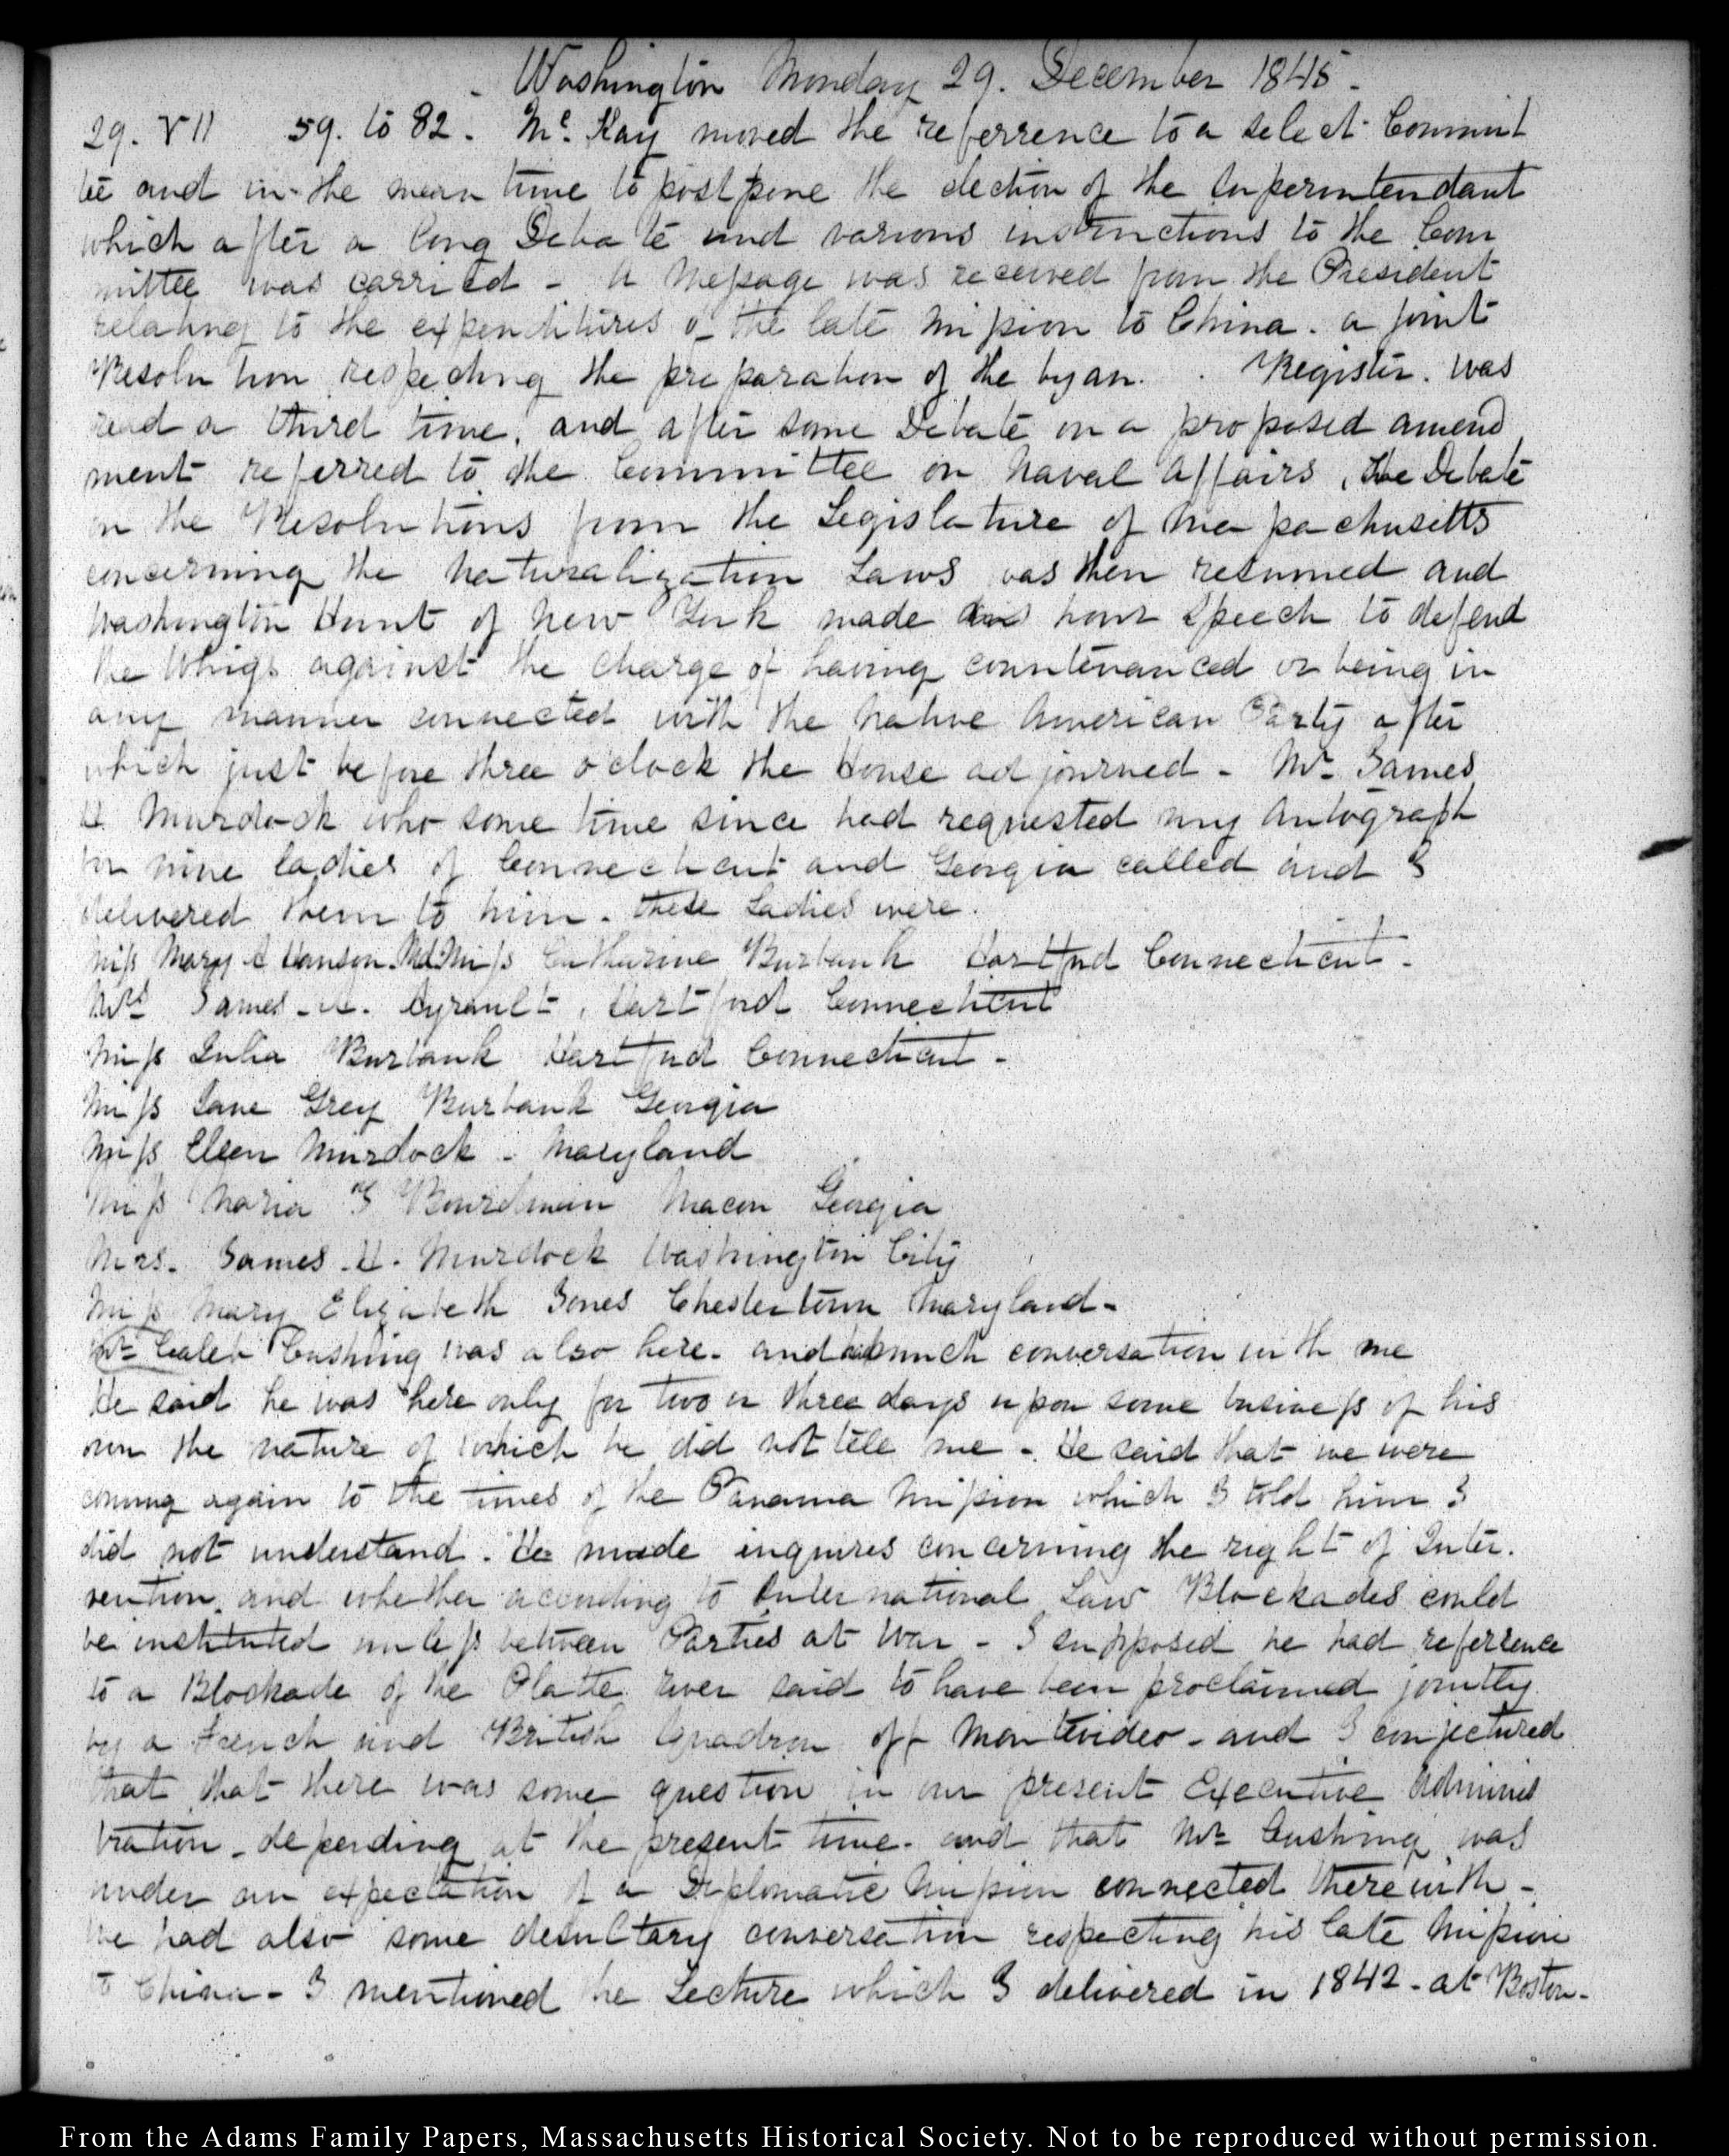 Washington Monday 29. December 1845.
29. VII 59. to 82. Mc. Kay moved the referrence to a select Commit
tee and in the mean time to postpone the election of the Superintendant
which after a long Debate and various instructions to the Com
mittee was carried - A Message was received from the President
relating to the expenditures of the late Mission to China. a joint
Resolution respecting the preparation of the Register. was
read a third time, and after some Debate on a proposed amend
ment referred to the Committee on Naval Affairs, the Debate
on the Resolutions from the Legislature of Massachusetts
concerning the Naturalization Laws was then resumed and
Washington Hunt of New York made hour Speech to defend
the Whigs against the charge of having countenanced or being in
any manner connected with the Native American Party after
which just before three o'clock the House adjourned - Mr. James
H Murdock who some time since had requested my Autograph
for nine ladies of Connecticut and Georgia called and I
delivered them to him. these Ladies were.
Miss Mary A Hanson. Md. Miss Catharine Burbank Hartford Connecticut.
Mrs James Ayrault, Hartford Connecticut
Miss Julia Burbank Hartford Connecticut -
Miss Jane Grey Burbank Georgia
Miss Ellen Murdock - Maryland
Miss Maria G Bourdman Macon Georgia
Mrs. James H. Murdock Washington City
Miss Mary Elizabeth Jones Chestertown Maryland -
Mr Caleb Cushing was also here. and had much conversation with me
He said he was here only for two or three days upon some business of his
own the nature of which he did not tell me - He said that we were
coming again to the times of the Panama Mission which I told him I
did not understand. He made inquires concerning the right of Inter.
vention, and whether according to International Law Blockades could
be instituted unless between Parties at War - I supposed he had referrence
to a Blockade of the Platte river said to have been proclaimed jointly
by a French and British Squadron off Montevideo - and I conjectured
that that there was some question in our present Executive Adminis
tration - depending at the present time. and that Mr Cushing was
under an expectation of a Diplomatic Mission connected therewith -
We had also some desultary conversation respecting his late Mission
to China - I mentioned the Lecture which I delivered in 1842 - at Boston -
From the Adams Family Papers, Massachusetts Historical Society. Not to be reproduced without permission.